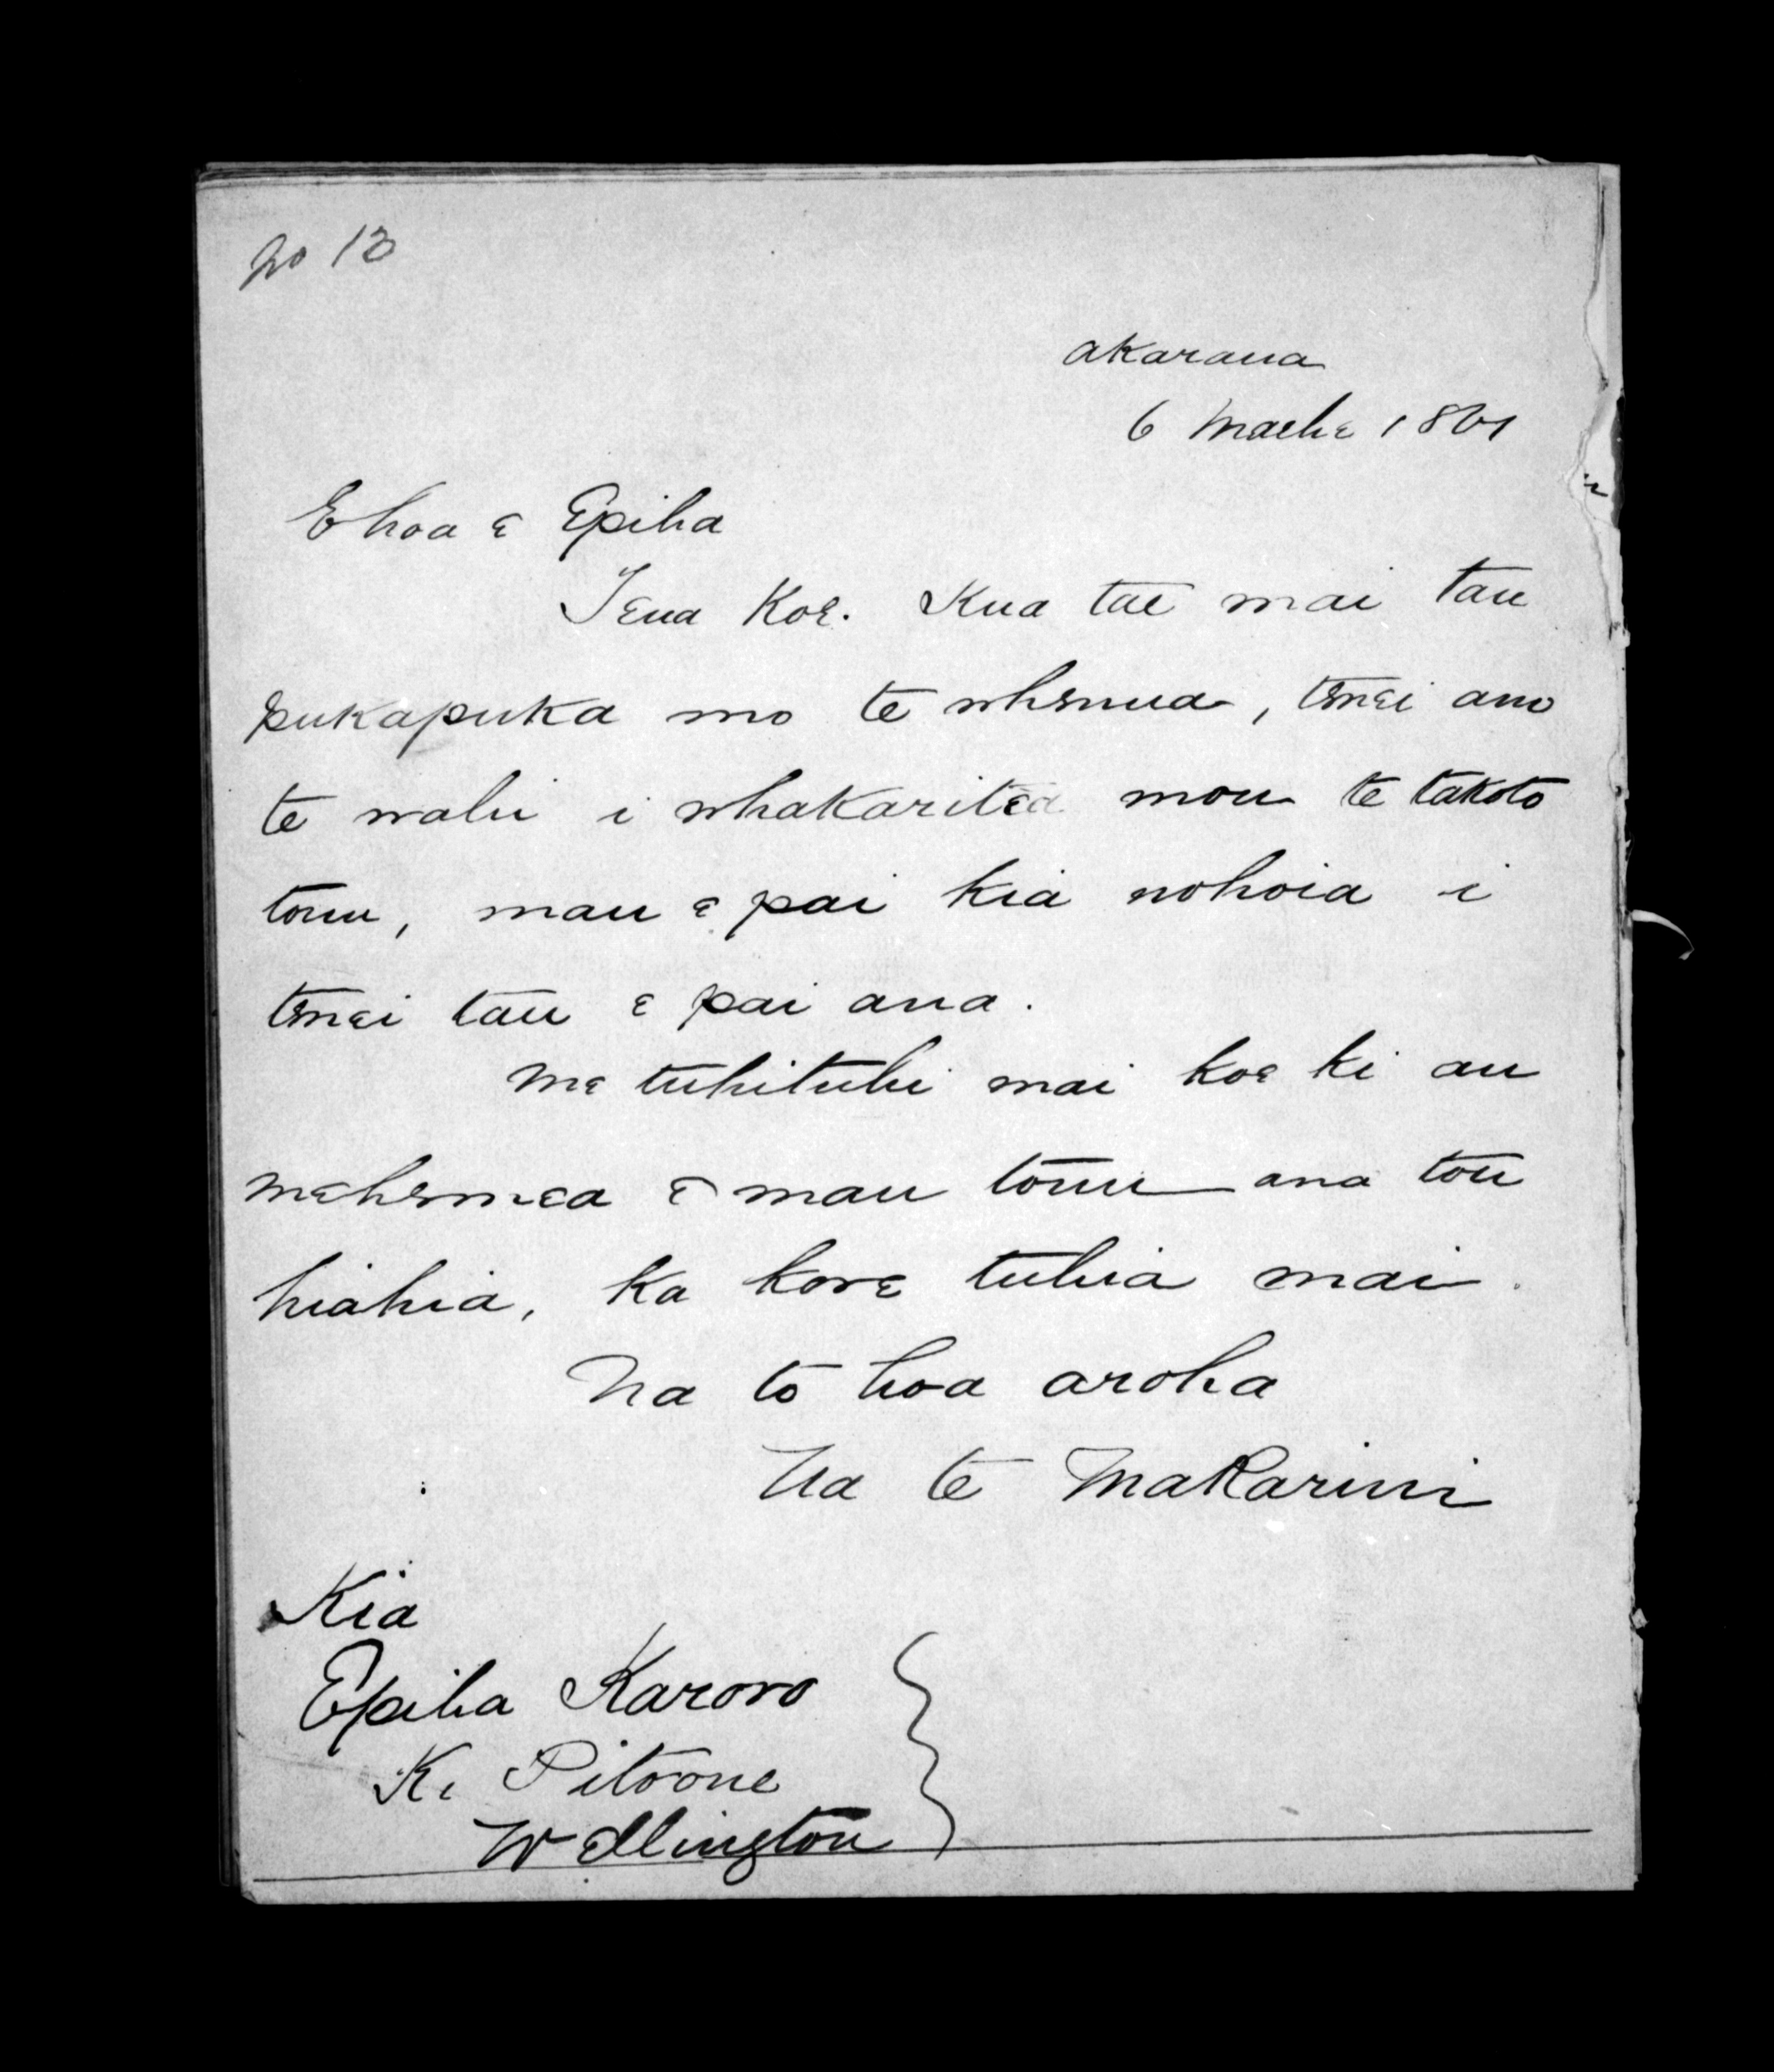 No 13
Akarana
6 Maehe 1861
E hoa e Epiha
Tena Koe. Kua tae mai tau
pukapuka mo te whenua, tenei ano
te wahi i whakaritea mou te takoto
tonu, mau e pai kia nohoia i
tenei tau e pai ana.
Me tuhituhi mai koe ki au
mehemea e mau tonu ana tou
hiahia, ka kore tuhia mai.
Na to hoa aroha
Na te Makarini
Kia
Epiha Karoro
Ki Pitoone
Wellington